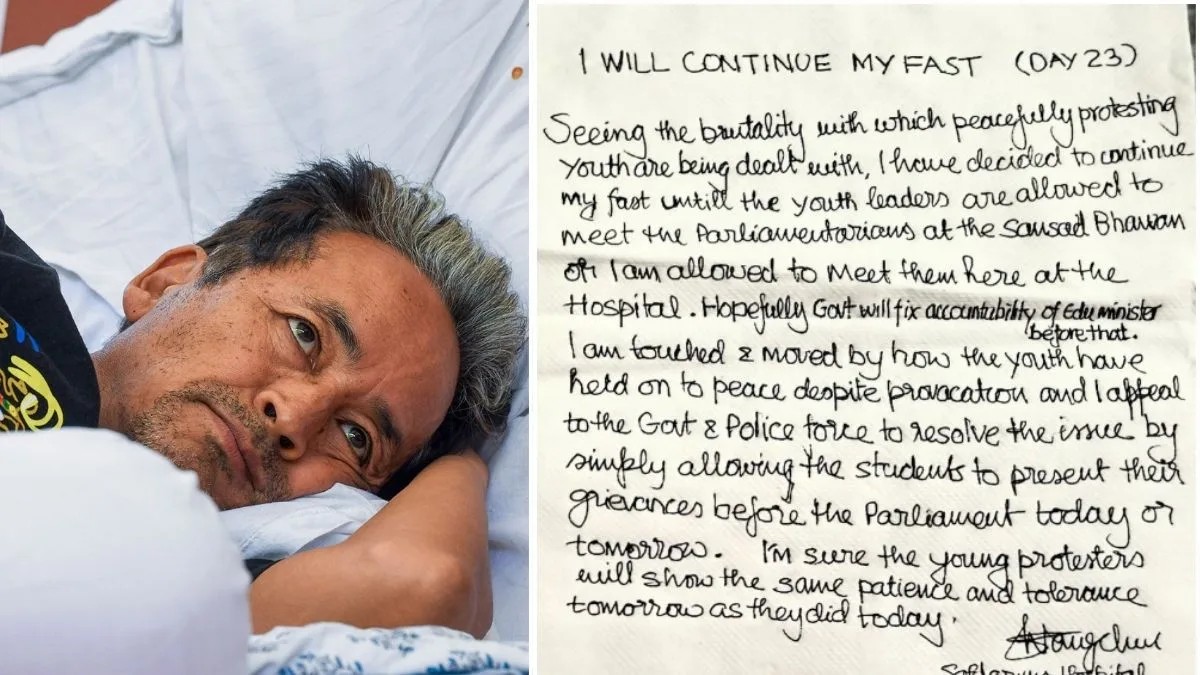 I WILL CONTINUE MY FAST (DAY 23)
Seeing the brutality with which peacefully protesting
youth are being dealt with, I have decided to continue
my fast untill the youth leaders are allowed to
meet the Parliamentarians at the Sansad Bhawan
or I am allowed to meet them here at the
Hospital. Hopefully Govt will fix accountability of Edu minister
before that.
I am touched & moved by how the youth have
held on to peace despite provacation and I appeal
to the Govt & Police force to resolve the issue by
simply allowing the students to present their
grievances before the Parliament today or
tomorrow. I'm sure the young protesters
will show the same patience and tolerance
tomorrow as they did today.
Wangchuk
Hospital